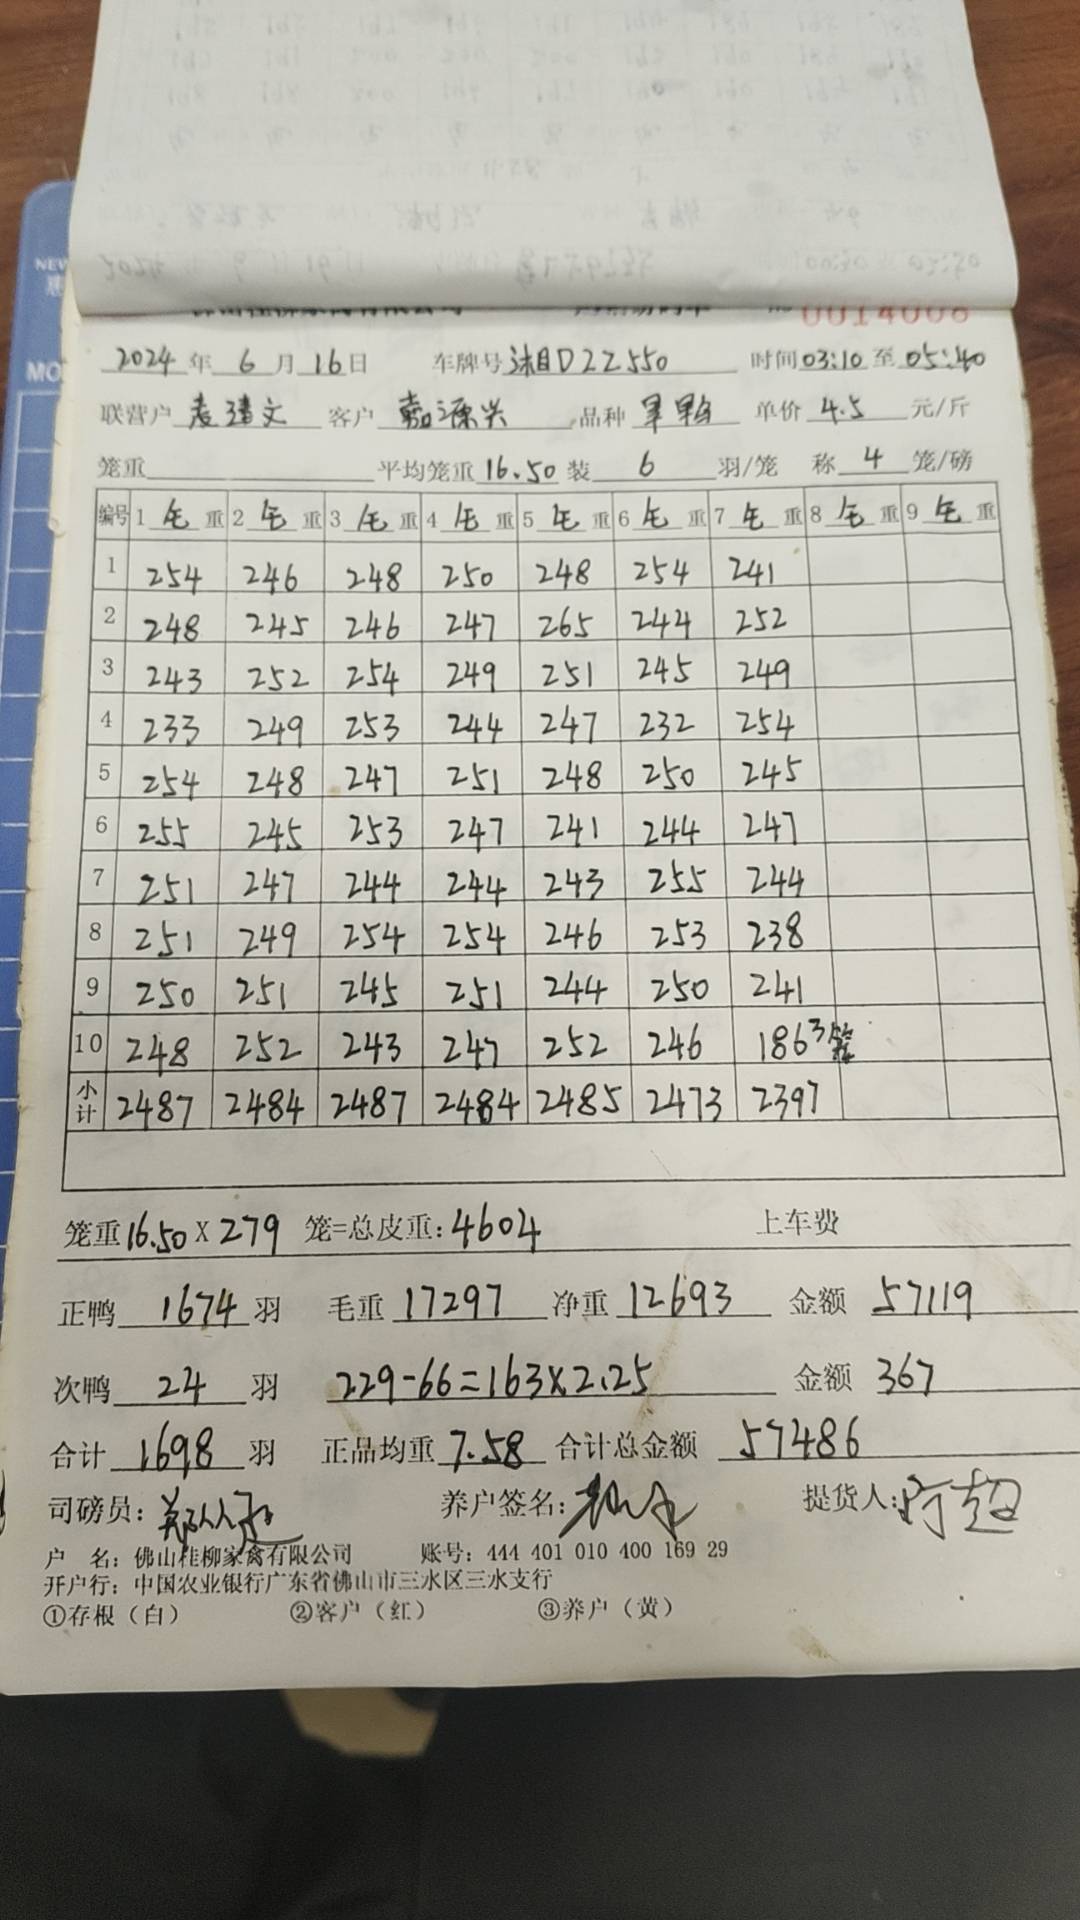 0014006
2024 年 6 月 16 日 车牌号 湘D22550 时间 03:10 至 05:40
联营户 麦清文 客户 嘉源兴 品种 单价 4.5 元/斤
笼重 平均笼重 16.50 装 6 羽/笼 称 4 笼/磅
编号 1 毛 重 2 毛 重 3 毛 重 4 毛 重 5 毛 重 6 毛 重 7 毛 重 8 毛 重 9 毛 重
1 254 246 248 250 248 254 241
2 248 245 246 247 265 244 252
3 243 252 254 249 251 245 249
4 233 249 253 244 247 232 254
5 254 248 247 251 248 250 245
6 255 245 253 247 241 244 247
7 251 247 244 244 243 255 244
8 251 249 254 254 246 253 238
9 250 251 245 251 244 250 241
10 248 252 243 247 252 246 186 3笼
小计 2487 2484 2487 2484 2485 2473 2397
笼重 16.50 X 279 笼=总皮重: 4604 上车费
正鸭 1674 羽 毛重 17297 净重 12693 金额 57119
次鸭 24 羽 229-66=163X2.25 金额 367
合计 1698 羽 正品均重 7.58 合计总金额 57486
司磅员: 养户签名: 提货人:
户 名: 佛山桂柳家禽有限公司 账号: 444 401 010 400 169 29
开户行: 中国农业银行广东省佛山市三水区三水支行
①存根（白） ②客户（红） ③养户（黄）